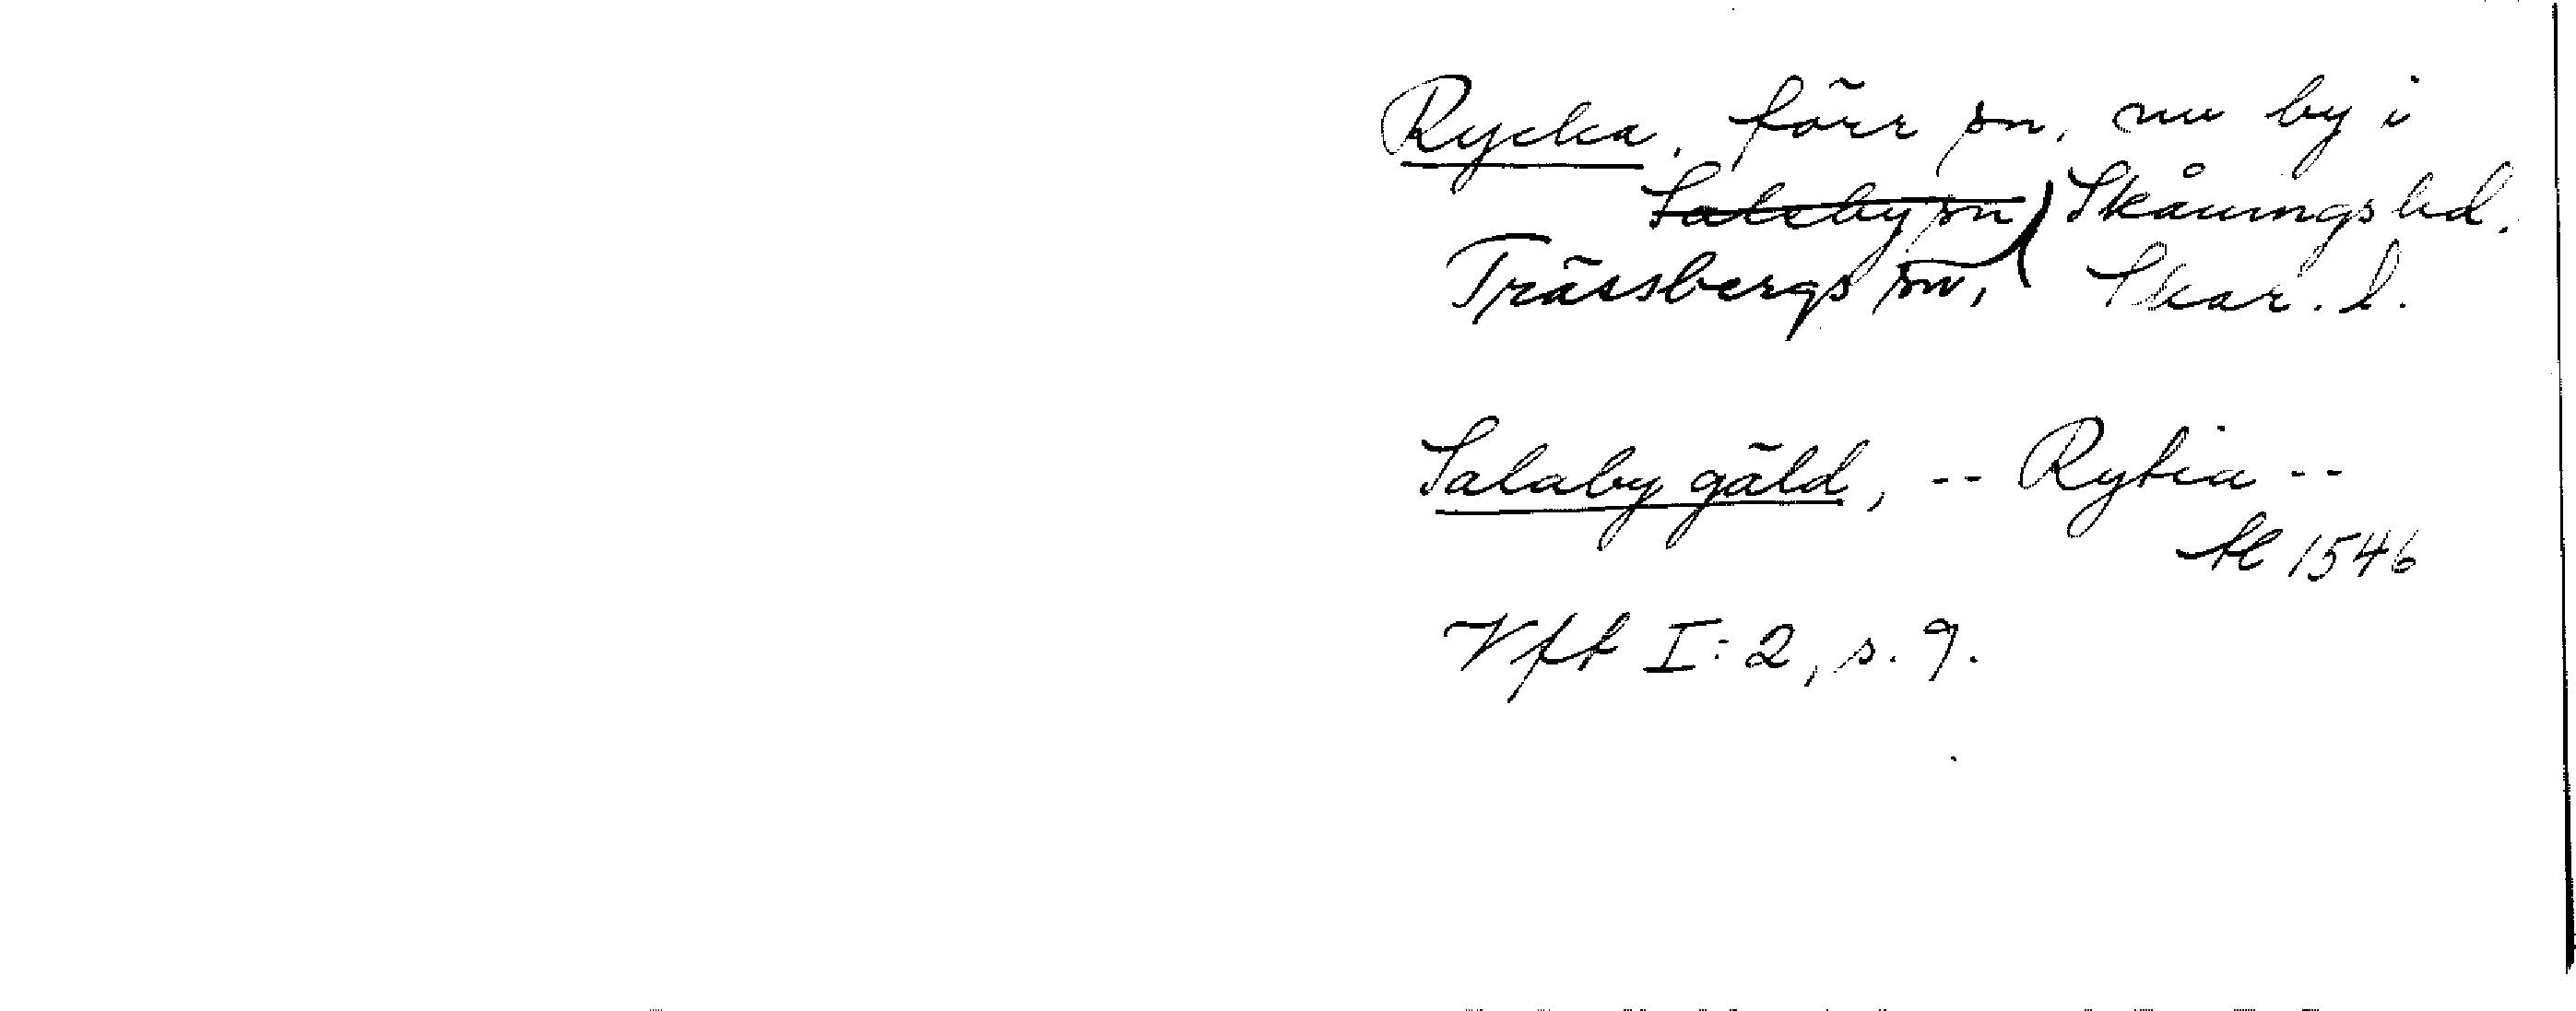 Rycka, förr sn, nu by i
Salaby sn Skånings hd.
Trässbergs sn, Skar. l.
Salaby gäld, -- Rykia --
1546
Vft I:2, s. 9.